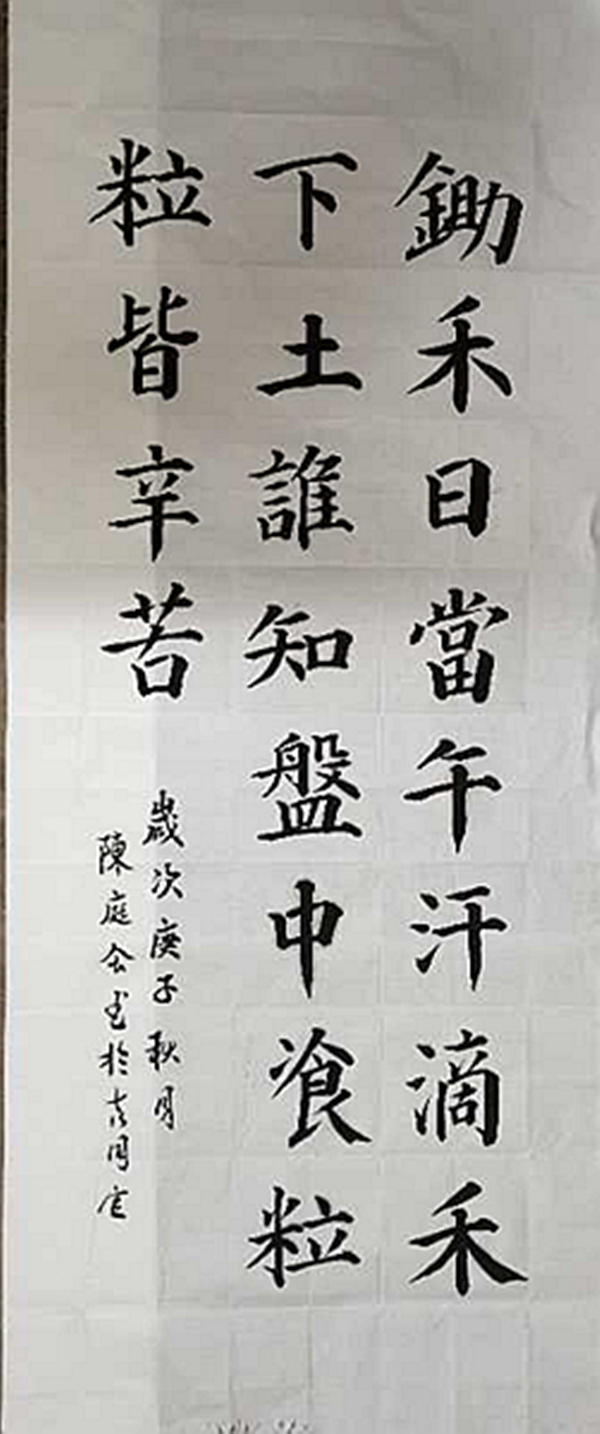 鋤禾日當午汗滴禾
下土誰知盤中飡粒
粒皆辛苦
歲次庚子秋月
陳庭会书於古同官